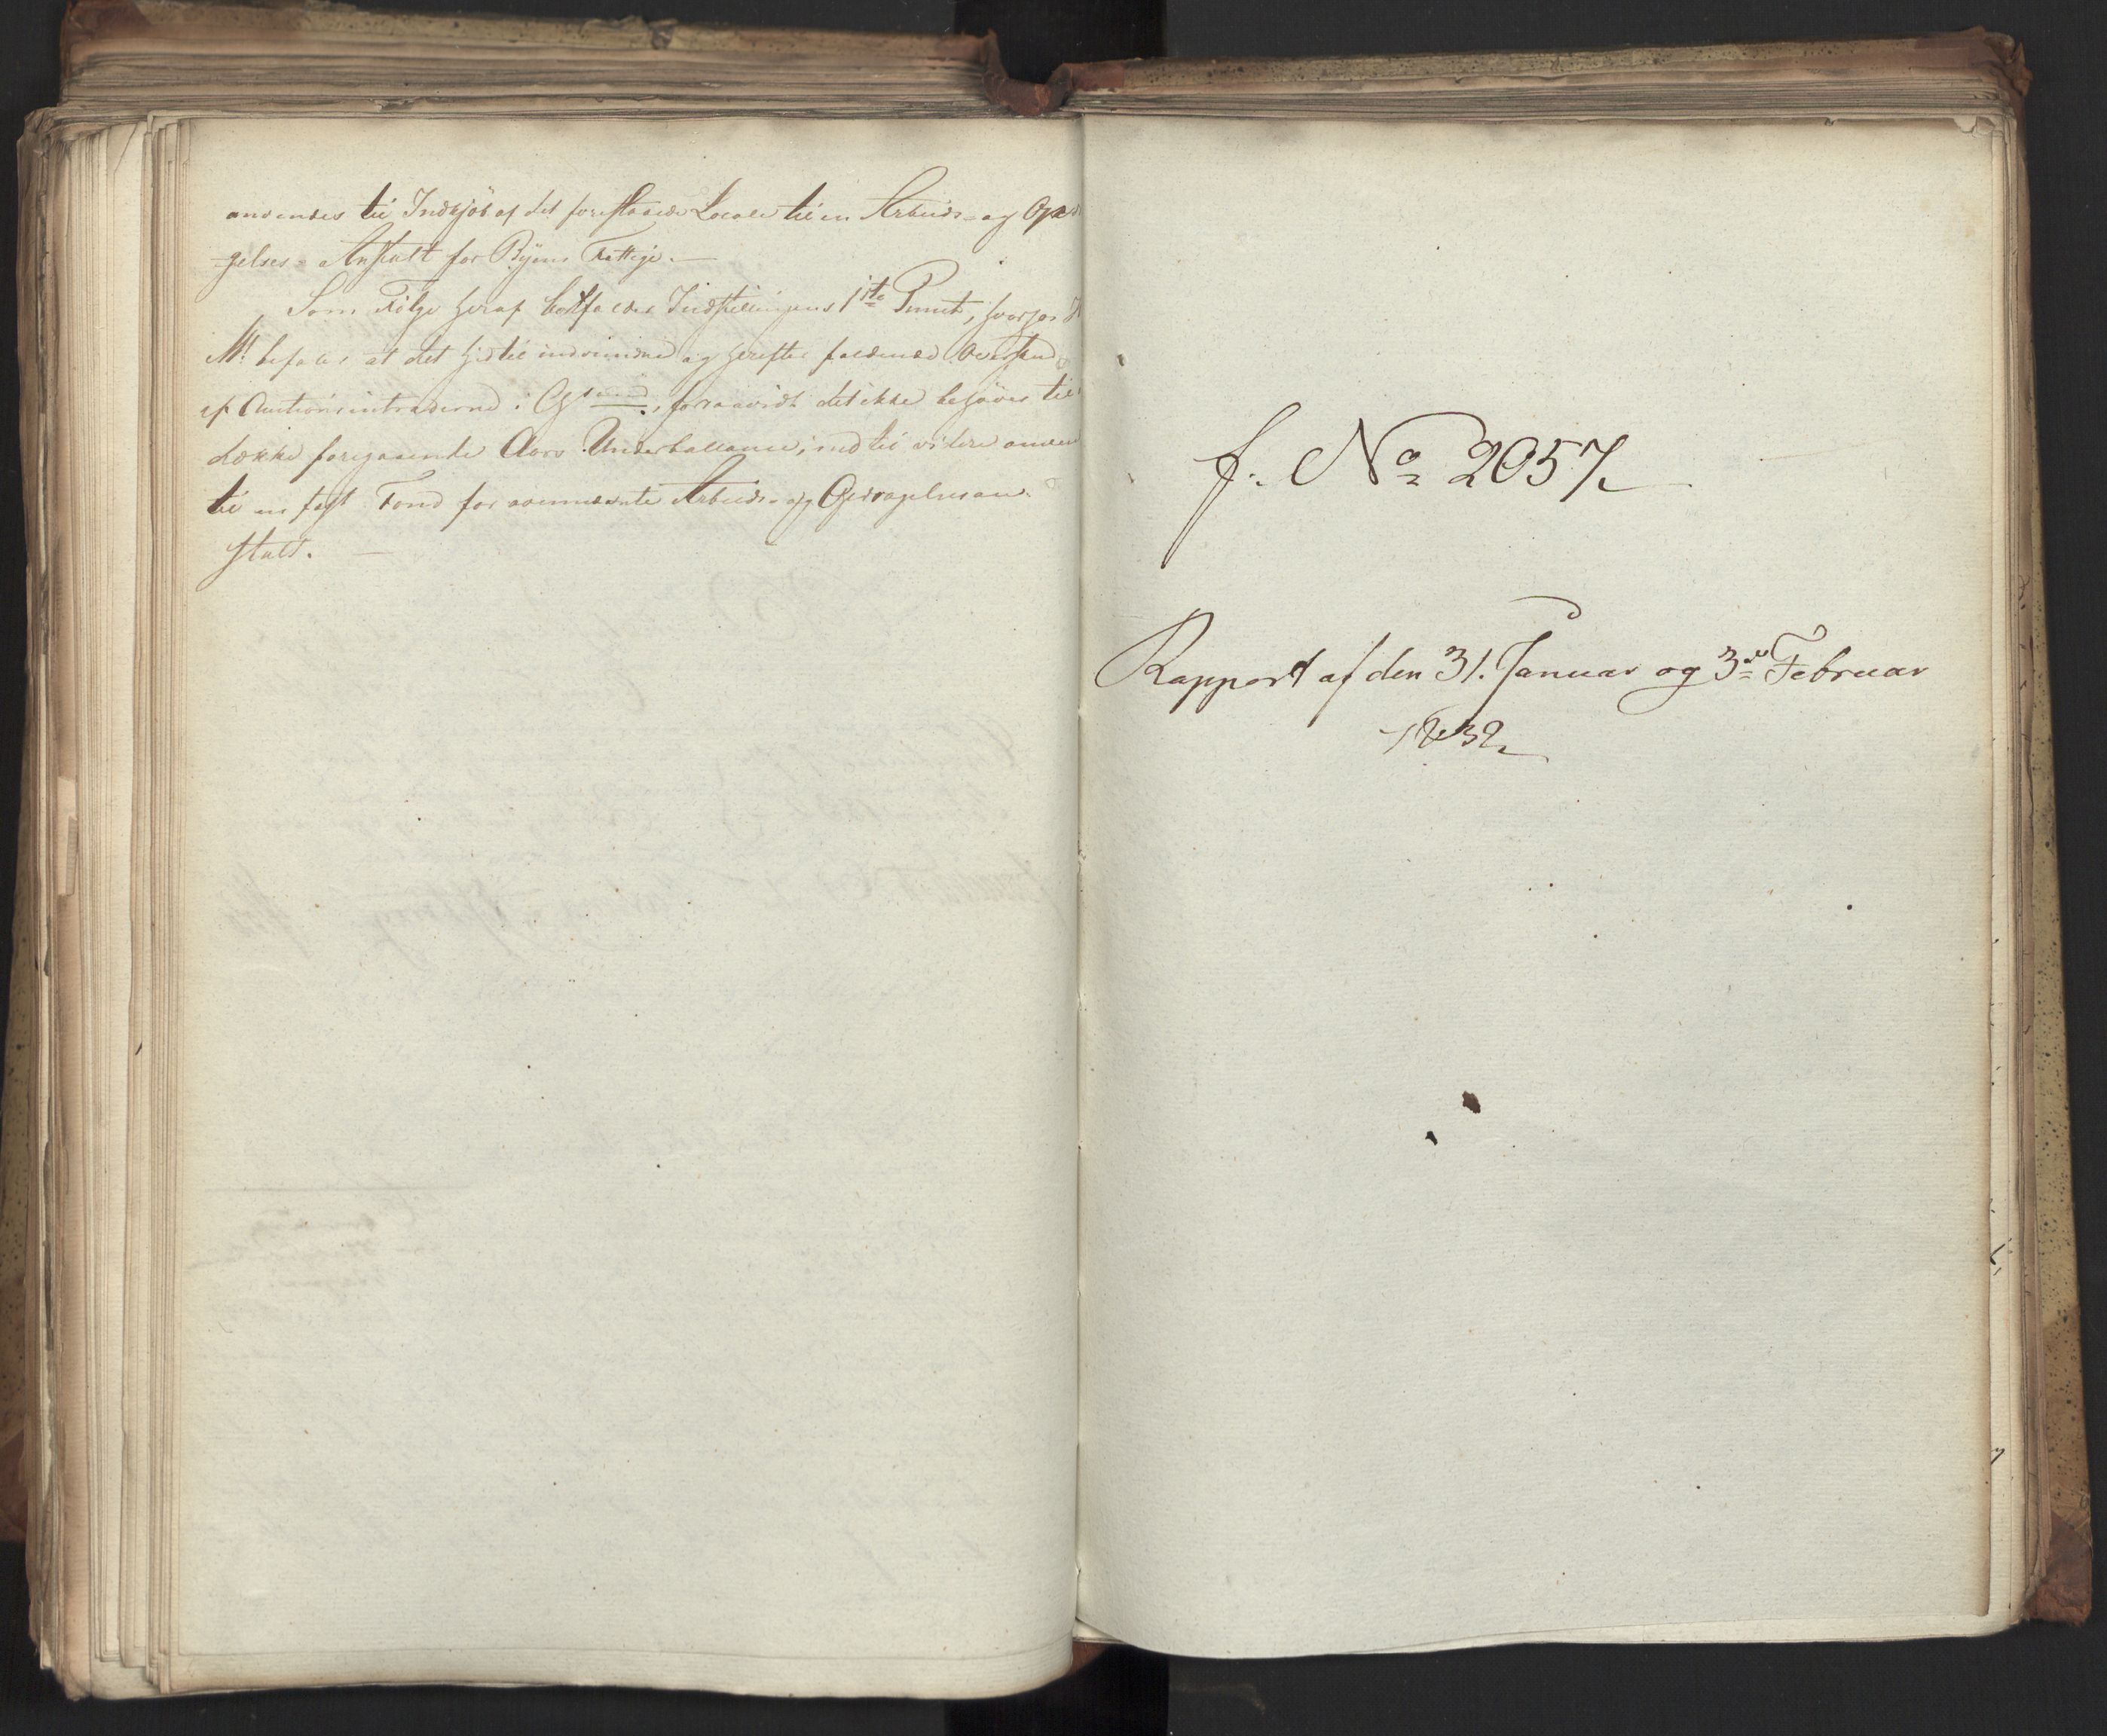 anvendes til Indkjøb af det foreslaaede Locale til en Arbeids- og Opdra
gelses-Anstalt for Byens Fattige. —
Som Følge heraf bortfalder Indstillingens 1ste Punct, hvorfor
Mt befaler at det hidtil indvundne og herefter faldende Overskud
af Auctionsintraderne i , forsaavidt det ikke behøves til
dække foregaaende Aars Underballance, indtil videre anven
til en fast Fond for ovennævnte Arbeids- og Opdragelsesan-
stalt. —
f. No 2057
Rapport af den 31. Januar og 3die Februar
1832